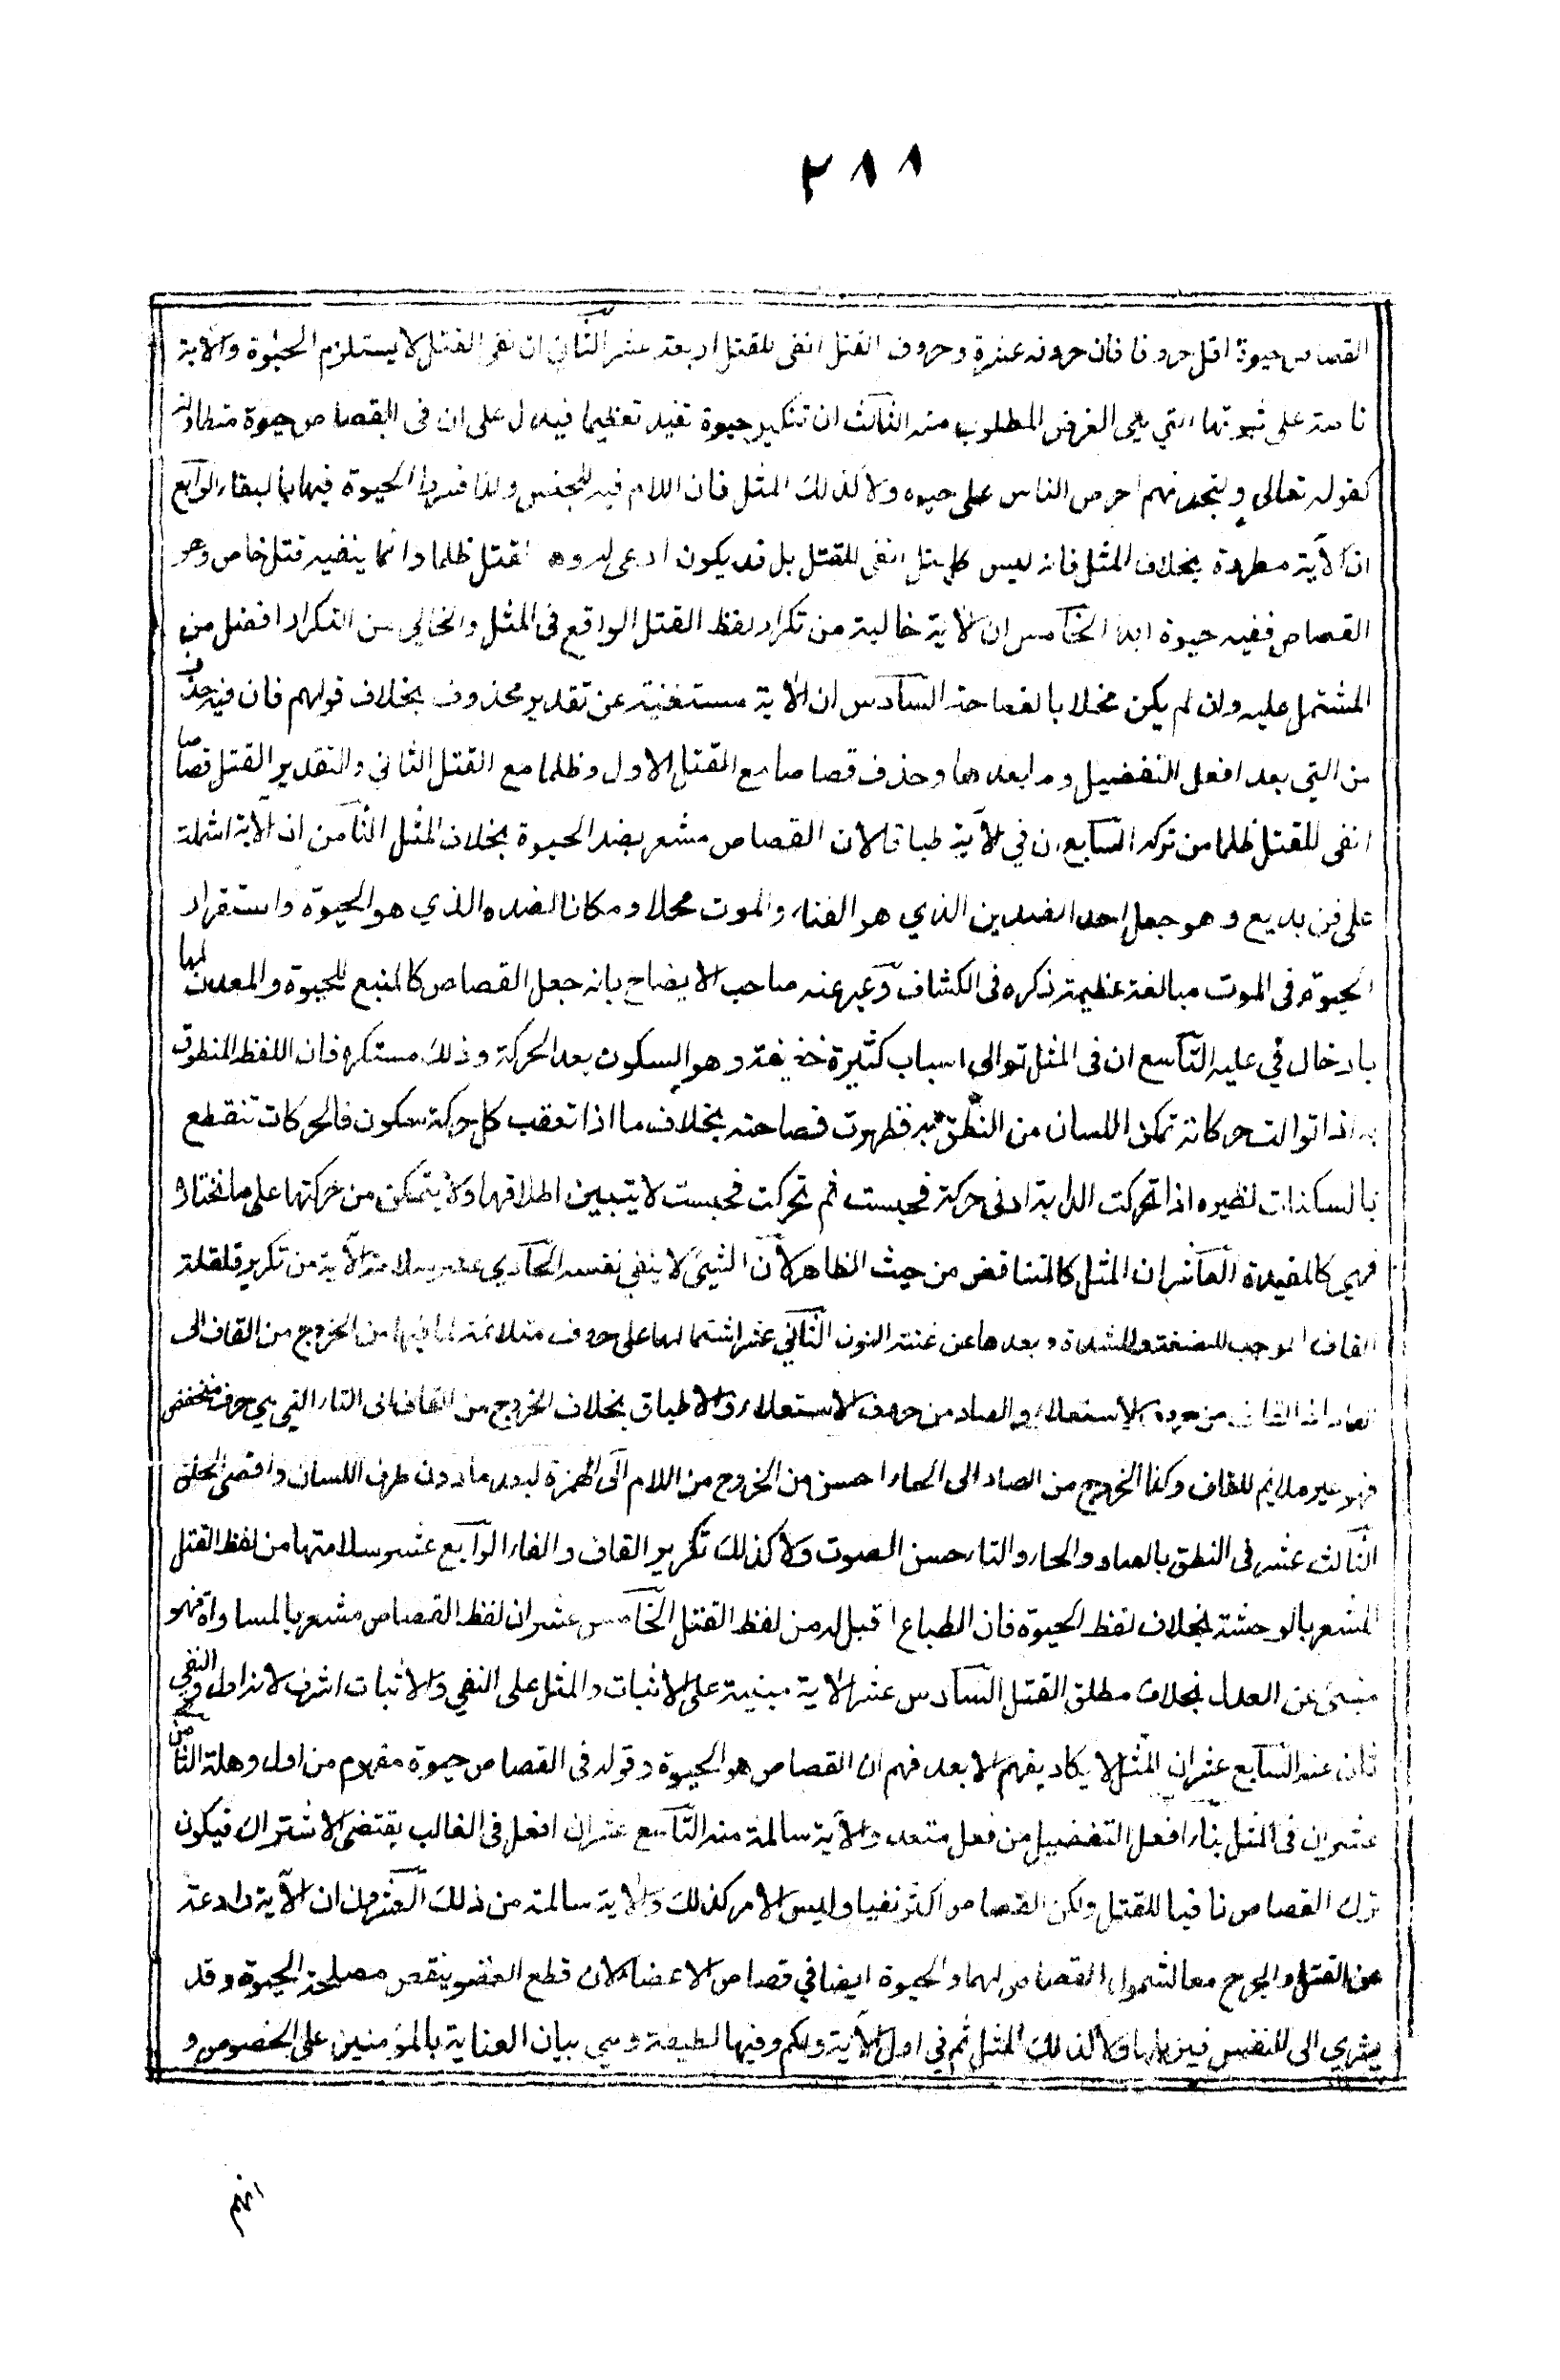 ٢٨٨
القصاص حيوة اقل حروفا فان حروفه عشرة وحروف القتل انفى للقتل اربعة عشر الثاني ان نفى القتل لا يستلزم الحيوة والآية
ناصة على ثبوتها التي هي الغرض المطلوب منه الثالث ان تنكير حيوة تفيد تعظيما فيدل على ان فى القصاص حيوة متطاولة
كقوله تعالى ولتجدنهم احرص الناس على حيوه ولا كذلك المثل فان اللام فيه للجنس ولذا فسروا الحيوة فيها بالبقاء الرابع
ان الآية مطردة بخلاف المثل فانه ليس كل قتل انفى للقتل بل قد يكون ادعى له وهو القتل ظلما وانما ينفيه قتل خاص وهو
القصاص ففيه حيوة ابدا الخامس ان الآية خالية من تكرار لفظ القتل الواقع فى المثل والخالي من التكرار افضل من
المشتمل عليه وان لم يكن مخلا بالفصاحة السادس ان الآية مستغنية عن تقدير محذوف بخلاف قولهم فان فيه حذف
من التي بعد افعل التفضيل وما بعدها وحذف قصاصا مع القتل الاول وظلما مع القتل الثاني والتقدير القتل قصاصا
انفى للقتل ظلما من تركه السابع ان في الآية طباقا لان القصاص مشعر بضد الحيوة بخلاف المثل الثامن ان الآية اشتملت
على فن بديع وهو جعل احد الضدين الذي هو الفناء والموت محلا ومكانا لضده الذي هو الحيوة واستقرار
الحيوة فى الموت مبالغة عظيمة ذكره فى الكشاف وعبر عنه صاحب الايضاح بانه جعل القصاص كالمنبع للحيوة والمعدن لها
بادخال في عليه التاسع ان فى المثل توالى اسباب كثيرة خفيفة وهو السكون بعد الحركة وذلك مستكره فان اللفظ المنطوق
به اذا توالت حركاته تمكن اللسان من النطق به فظهرت فصاحته بخلاف ما اذا تعقب كل حركة سكون فالحركات تنقطع
بالسكنات نظيره اذا تحركت الدابة ادنى حركة فحبست ثم تحركت فحبست لا يتبين اطلاقها ولا يتمكن من حركتها على ما نختاره
فهي كالمقيدة العاشر ان المثل كالمتناقض من حيث الظاهر لان الشيئ لا ينفي نفسه الحادي عشر سلامة الآية من تكرير قلقلة
القاف الموجب للضغة والشدة وبعدها عن غنة النون الثاني عشر اشتمالها على حروف متلائمة لما فيها من الخروج من القاف الى
الصاد اذ القاف من حروف الاستعلاء والصاد من حروف الاستعلاء والاطباق بخلاف الخروج من القاف الى التاء التي هي حرف منخفض
فهو غير ملائم للقاف وكذا الخروج من الصاد الى الحاء احسن من الخروج من اللام الى الهمزة لبعد ما دون طرف اللسان واقصى الحلق
الثالث عشر فى النطق بالصاد والحاء والتاء حسن الصوت ولا كذلك تكرير القاف والفاء الرابع عشر سلامتها من لفظ القتل
المشعر بالوحشة بخلاف لفظ الحيوة فان الطباع اقبل له من لفظ القتل الخامس عشر ان لفظ القصاص مشعر بالمساواة فهو
منبئ عن العدل بخلاف مطلق القتل السادس عشر الآية مبنية على الاثبات والمثل على النفي والاثبات اشرف لانه اول والنفي
ثان عنه السابع عشر ان المثل لا يكاد يفهم الا بعد فهم ان القصاص هو الحيوة وقوله فى القصاص حيوة مفهوم من اول وهلة الثامن
عشر ان فى المثل بناء افعل التفضيل من فعل متعد والآية سالمة منه التاسع عشر ان افعل فى الغالب يقتضى الاشتراك فيكون
ترك القصاص نافيا للقتل ولكن القصاص اكثر نفيا وليس الامر كذلك والآية سالمة من ذلك العشرون ان الآية رادعة
عن القتل والجرح معا لشمول القصاص لهما والحيوة ايضا في قصاص الاعضاء لان قطع العضو ينقص مصلحة الحيوة وقد
يسري الى النفس فيزيلها ولا كذلك المثل ثم في اول الآية ولكم وفيها لطيفة وهي بيان العناية بالمؤمنين على الخصوص و
انهم